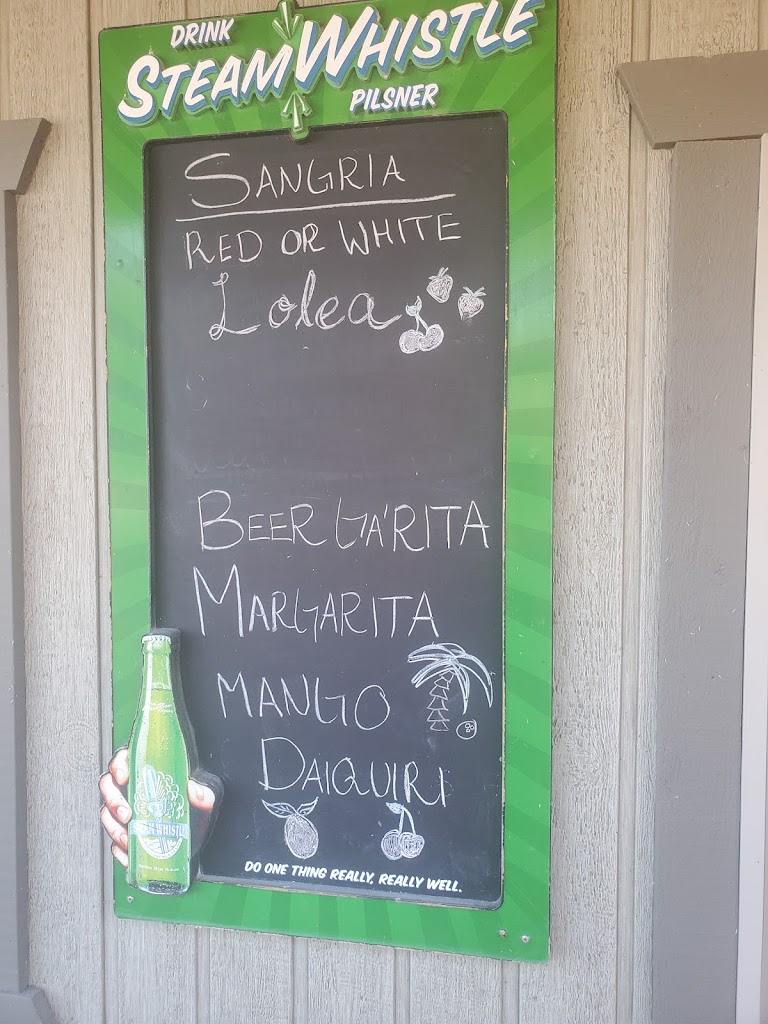 DRINK
STEAM WHISTLE
PILSNER
SANGRIA
RED OR WHITE
Lolea
BEER GA'RITA
MARGARITA
MANGO
DAIQUIRI
STEAM WHISTLE
DO ONE THING REALLY, REALLY WELL.